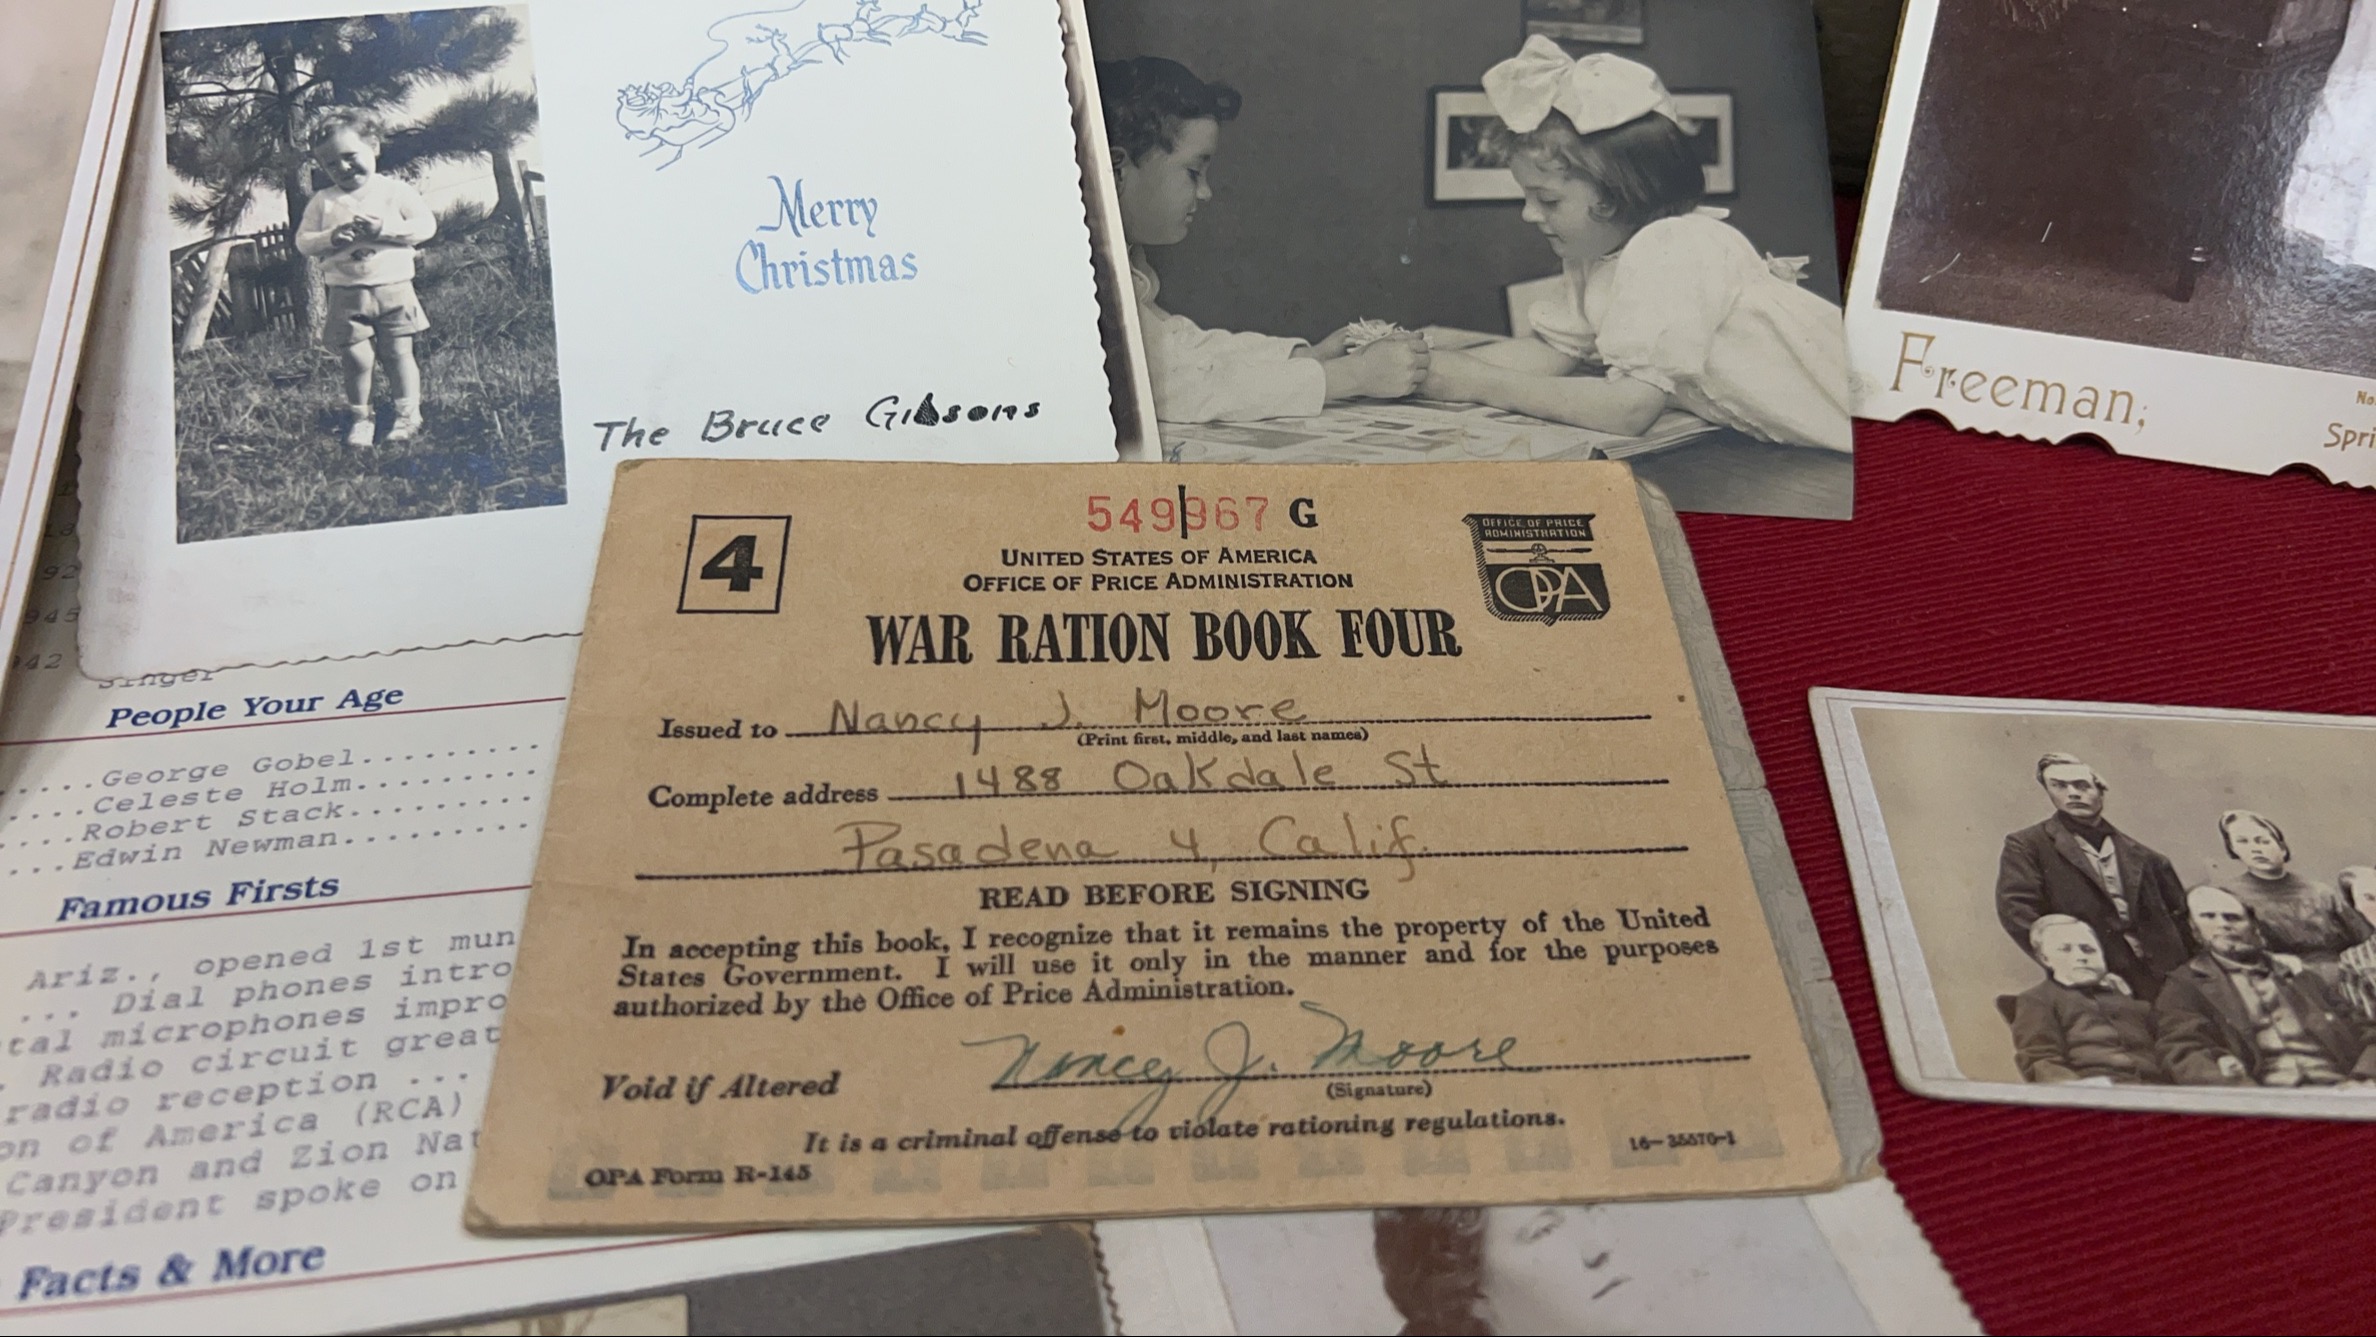 Merry
Christmas
The Bruce Gibsons
Freeman,
No.
Spri
92
945
42
Singer
People Your Age
....George Gobel........
....Celeste Holm........
....Robert Stack........
...Edwin Newman........
Famous Firsts
Ariz., opened 1st mun
... Dial phones intro
tal microphones impro
. Radio circuit great
radio reception ...
on of America (RCA)
Canyon and Zion Nat
President spoke on
Facts & More
549967 G
4
OFFICE OF PRICE
ADMINISTRATION
OPA
UNITED STATES OF AMERICA
OFFICE OF PRICE ADMINISTRATION
WAR RATION BOOK FOUR
Issued to Nancy J. Moore
(Print first, middle, and last names)
Complete address 1488 Oakdale St
Pasadena 4, Calif.
READ BEFORE SIGNING
In accepting this book, I recognize that it remains the property of the United
States Government. I will use it only in the manner and for the purposes
authorized by the Office of Price Administration.
Void if Altered Nancy J. Moore
(Signature)
It is a criminal offense to violate rationing regulations.
OPA Form R-145
16-35570-1